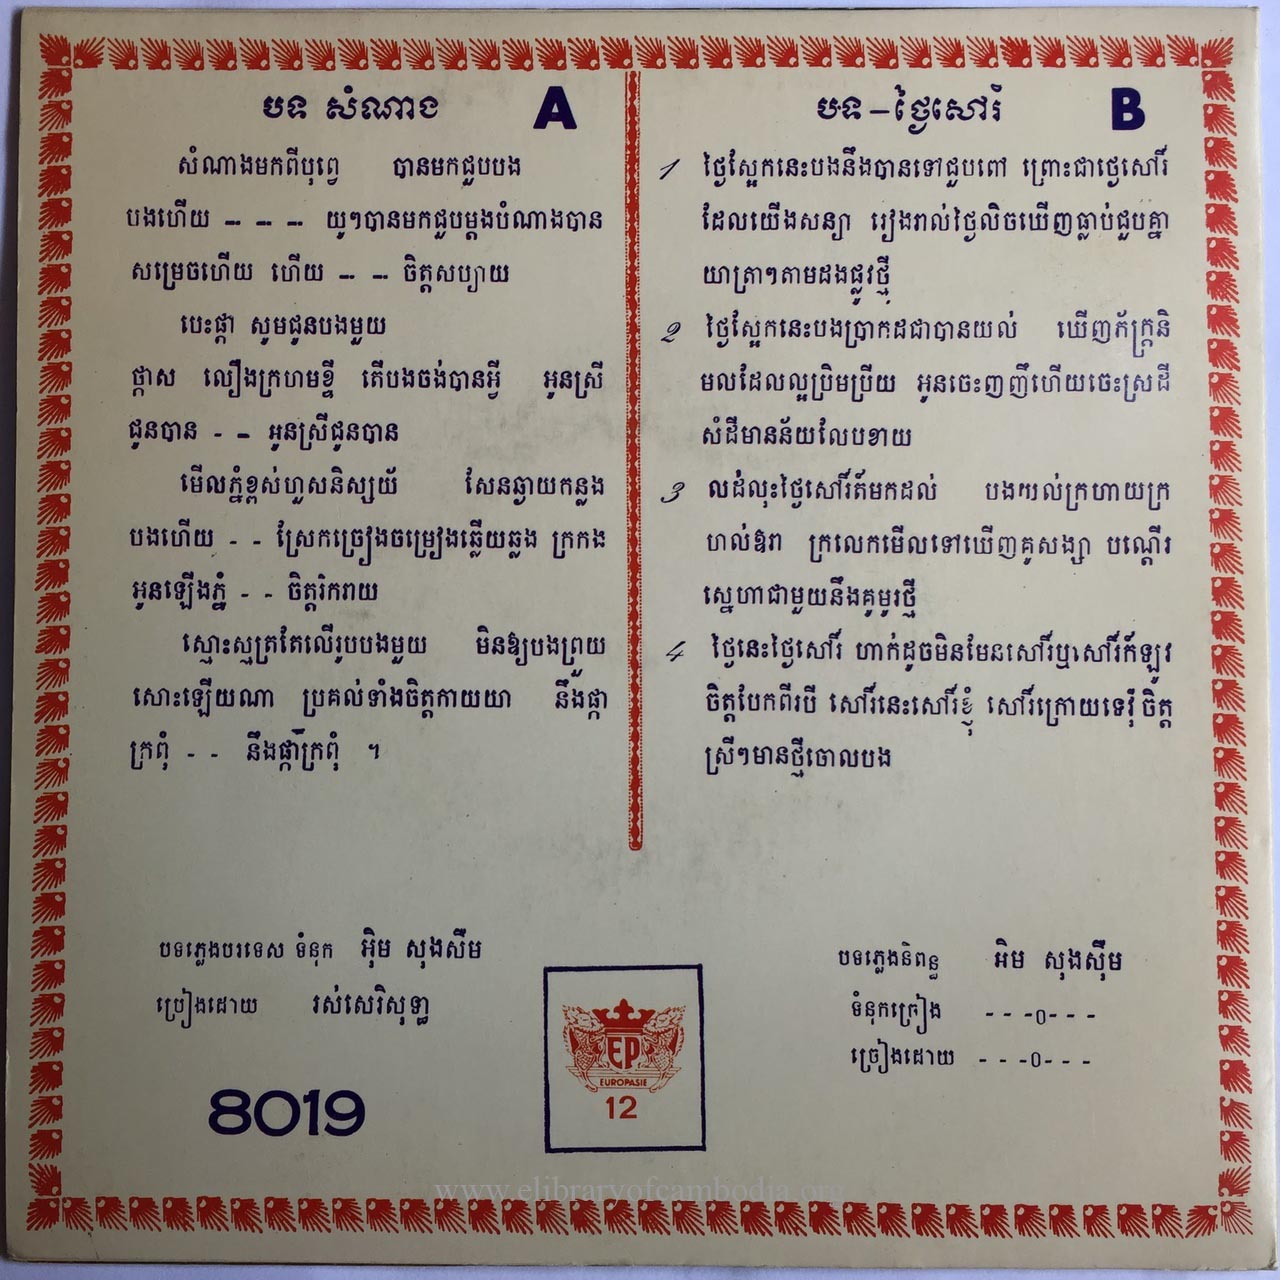 បទ សំណាង A
សំណាងមកពីបុព្វេ បានមកជួបបង
បងហើយ -- -- -- យូៗបានមកជួបម្ដងបំណាងបាន
សម្រេចហើយ ហើយ -- -- ចិត្តសប្បាយ
បេះផ្កា សូមជូនបងមួយ
ផ្កាស លឿងក្រហមខ្ចី តើបងចង់បានអ្វី អូនស្រី
ជូនបាន - -- អូនស្រីជូនបាន
មើលភ្នំខ្ពស់ហួសនិស្សយ័ សែនឆ្ងាយកន្លង
បងហើយ - - ស្រែកច្រៀងចម្រៀងឆ្លើយឆ្លង ក្រកង
អូនឡើងភ្នំ - - ចិត្តរិករាយ
ស្មោះស្មត្រតែលើរូបបងមួយ មិនឱ្យបងព្រួយ
សោះឡើយណា ប្រគល់ទាំងចិត្តកាយយា នឹងផ្កា
ក្រពុំ - - នឹងផ្កាក្រពុំ ។
បទភ្លេងបរទេស ទំនុក អ៊ិម សុងសឺម
ច្រៀងដោយ រស់សេរីសុទ្ធា
8019
បទ - ថ្ងៃសៅរិ៍ B
1 ថ្ងៃស្អែកនេះបងនឹងបានទៅជួបពៅ ព្រោះជាថ្ងៃសៅរិ៍
ដែលយើងសន្យា រៀងរាល់ថ្ងៃលិចឃើញធ្លាប់ជួបគ្នា
យាត្រាៗតាមដងផ្លូវថ្មី
2 ថ្ងៃស្អែកនេះបងប្រាកដជាបានយល់ ឃើញភ័ក្ត្រនិ
មលដែលល្អប្រិមប្រីយ អូនចេះញញឹហើយចេះស្រដី
សំដីមានន័យលែបខាយ
3 លដំលុះថ្ងៃសៅរិ៍ត័មកដល់ បងយល់ក្រហាយក្រ
ហល់ឱរា ក្រលេកមើលទៅឃើញគូសង្សា បណ្ដើរ
ស្នេហាជាមួយនឹងគូមូរថ្មី
4 ថ្ងៃនេះថ្ងៃសៅរិ៍ ហាក់ដូចមិនមែនសៅរិ៍ឬសៅរិ៍ក័ឡូវ
ចិត្តបែកពីរបី សៅរិ៍នេះសៅរិ៍ខ្ញុំ សៅរិ៍ក្រោយទេវ៉ី ចិត្ត
ស្រីៗមានថ្មីចោលបង
បទភ្លេងនិពន្ធ អិម សុងស៊ឹម
ទំនុកច្រៀង - - -0- - -
ច្រៀងដោយ - - -0- - -
EP
EUROPASIE
12
www.elibraryofcambodia.org